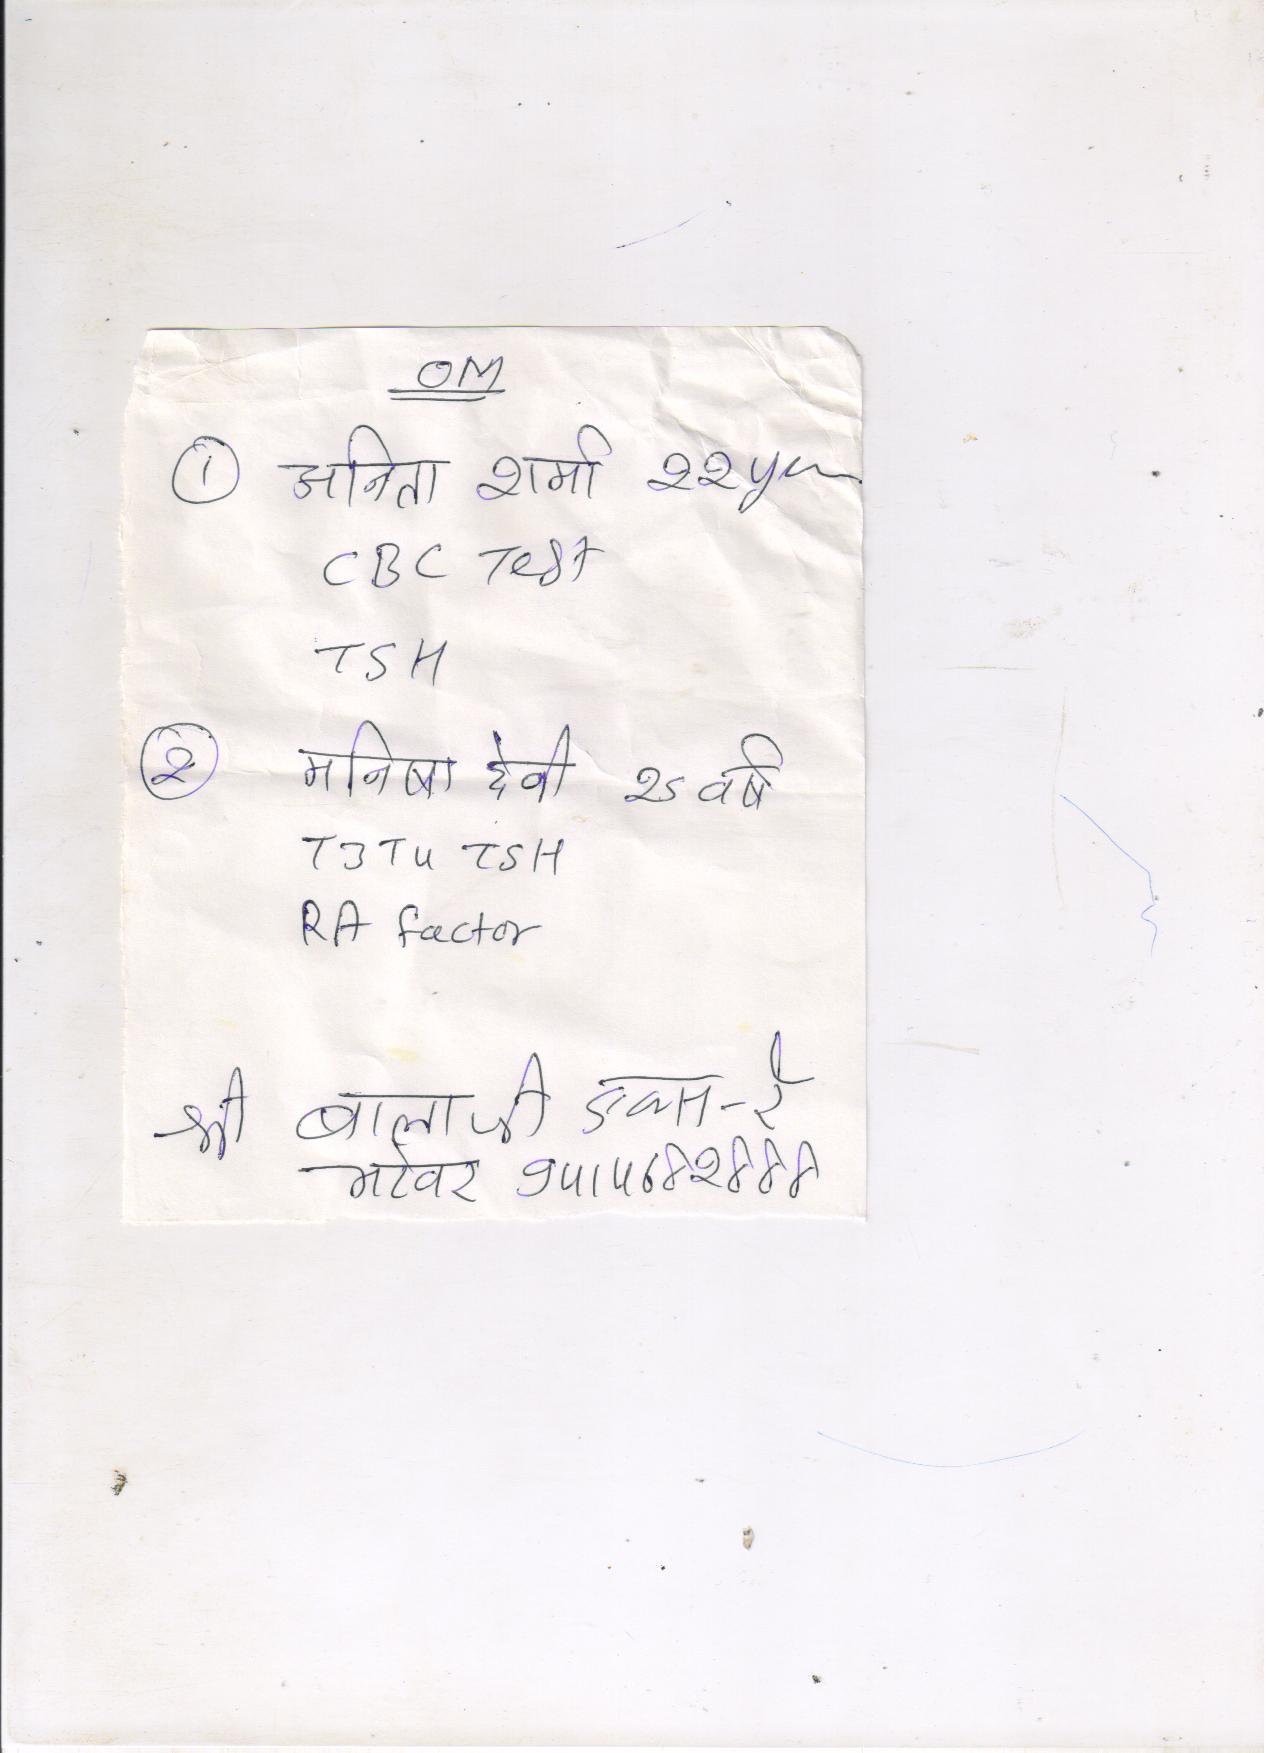 OM
① अनिता शर्मा 22 yrs
CBC Test
TSH
② मनिषा देवी 25 वर्ष
T3 T4 TSH
RA factor
श्री बालाजी एक्स-रे
भटेवर 9414682888